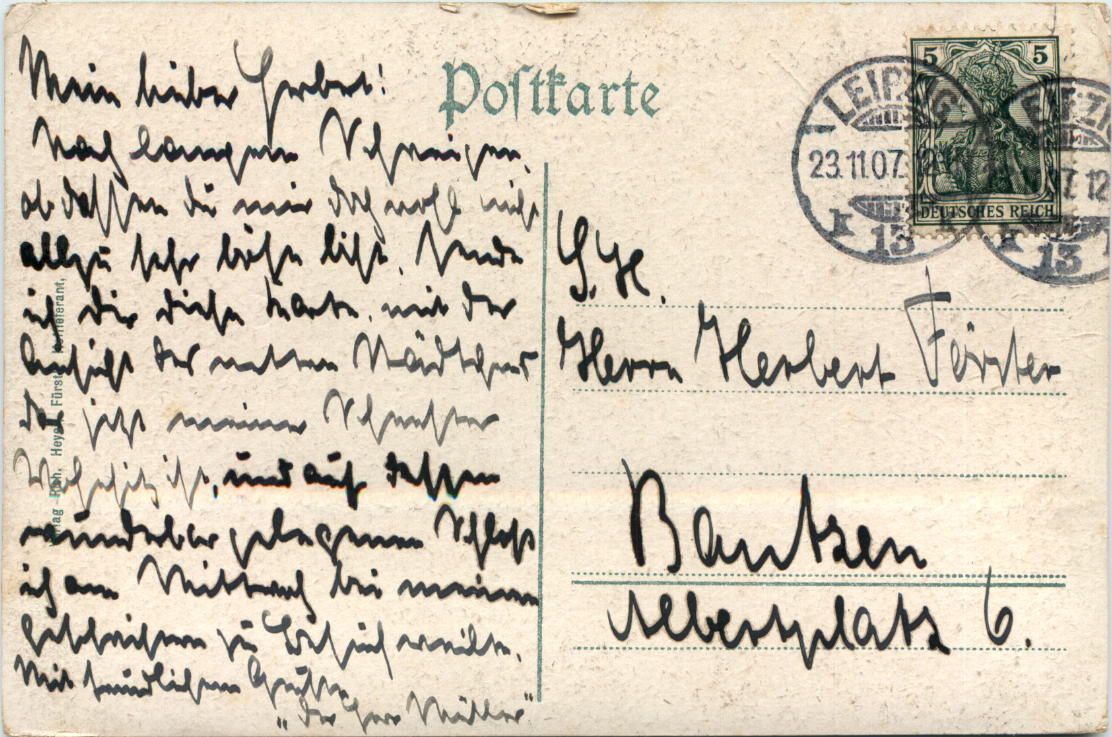 Mein lieber Herbert!
Nach langem Schweigen,
ob dessen du mir doch wohl nicht
allzu sehr böse bist, sende
ich dir diese Karte, mit der
Ansicht des netten Städtchens
das jetzt meiner Schwester
Wohnsitz ist, und auf dessen
wunderbar gelegenen Schloß
ich am Mittwoch bei meinen
Geschwistern zu Besuch weilte.
Mit freundlichem Grüßen
„Der Herr Müller"
Verlag - Rich. Heyer, Fürstl. Hoflieferant,
Postkarte
5 5
DEUTSCHES REICH
LEIPZIG
23.11.07. 12
13
LEIPZIG
7. 12
13
S. H.
Herrn Herbert Förster
Bautzen
Albertplatz 6.